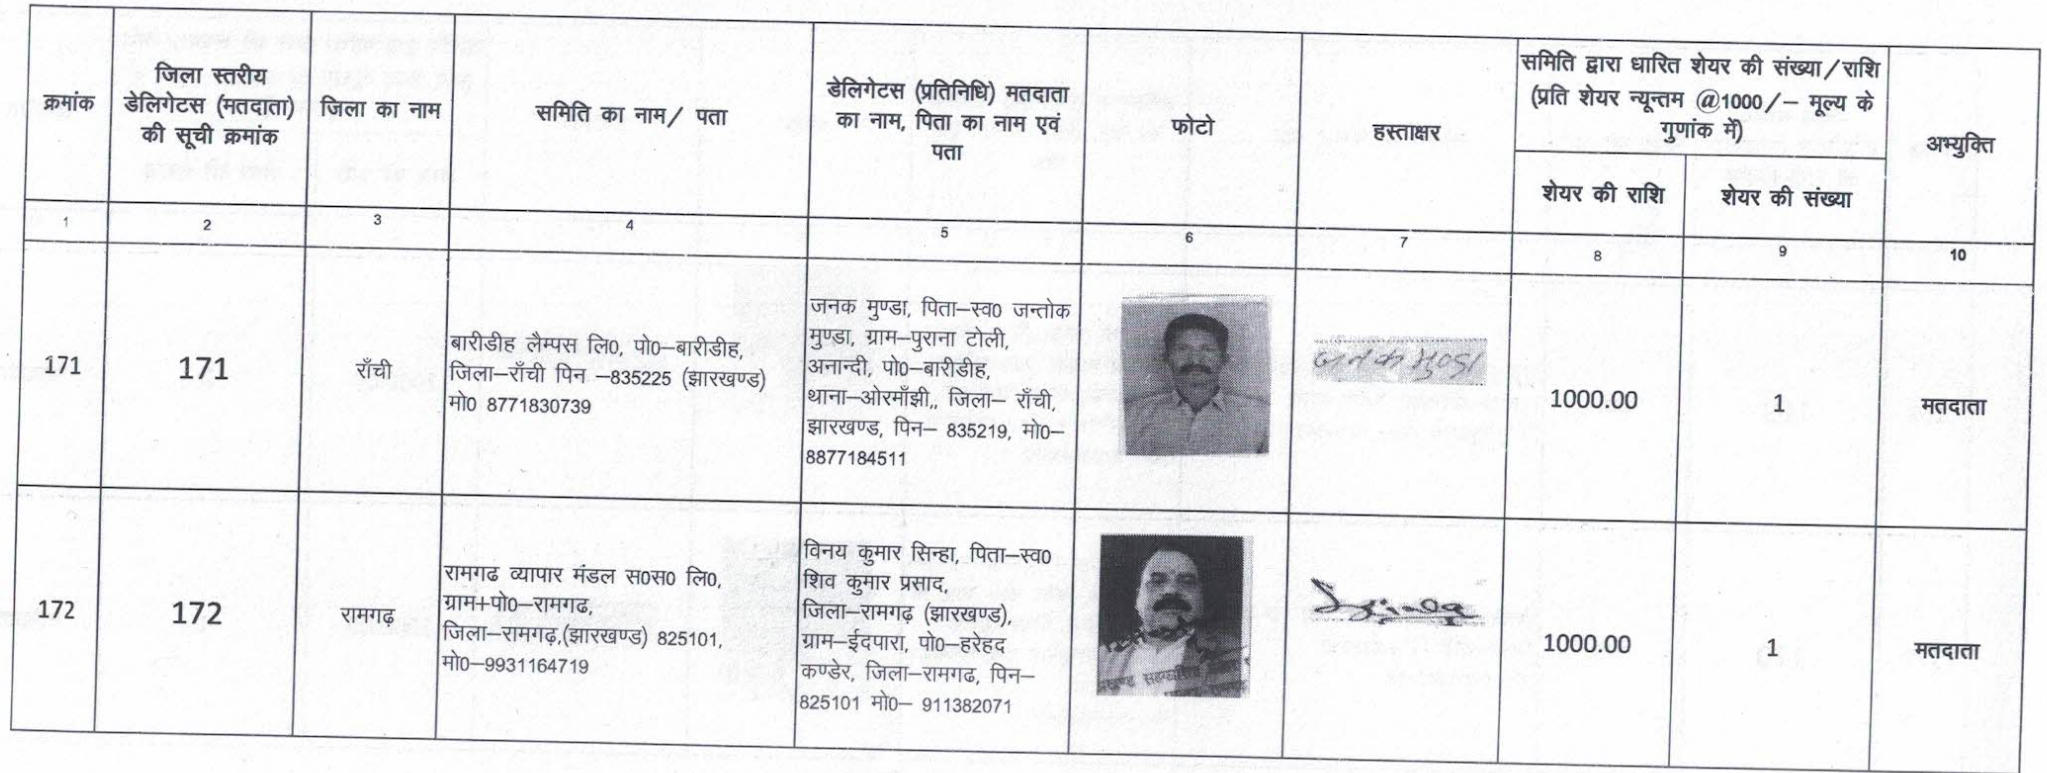 क्रमांक
जिला स्तरीय
डेलिगेटस (मतदाता)
की सूची क्रमांक
जिला का नाम
समिति का नाम/ पता
डेलिगेटस (प्रतिनिधि) मतदाता
का नाम, पिता का नाम एवं
पता
फोटो
हस्ताक्षर
समिति द्वारा धारित शेयर की संख्या/राशि
(प्रति शेयर न्यून्तम @1000/– मूल्य के
गुणांक में)
शेयर की राशि
शेयर की संख्या
अभ्युक्ति
1
2
3
4
5
6
7
8
9
10
171
171
राँची
बारीडीह लैम्पस लि0, पो0–बारीडीह,
जिला–राँची पिन –835225 (झारखण्ड)
मो0 8771830739
जनक मुण्डा, पिता–स्व0 जन्तोक
मुण्डा, ग्राम–पुराना टोली,
अनान्दी, पो0–बारीडीह,
थाना–ओरमाँझी,, जिला– राँची,
झारखण्ड, पिन– 835219, मो0–
8877184511
जनक मुण्डा
1000.00
1
मतदाता
172
172
रामगढ़
रामगढ व्यापार मंडल स0स0 लि0,
ग्राम+पो0–रामगढ,
जिला–रामगढ़,(झारखण्ड) 825101,
मो0–9931164719
विनय कुमार सिन्हा, पिता–स्व0
शिव कुमार प्रसाद,
जिला–रामगढ़ (झारखण्ड),
ग्राम–ईदपारा, पो0–हरेहद
कण्डेर, जिला–रामगढ, पिन–
825101 मो0– 911382071
1000.00
1
मतदाता